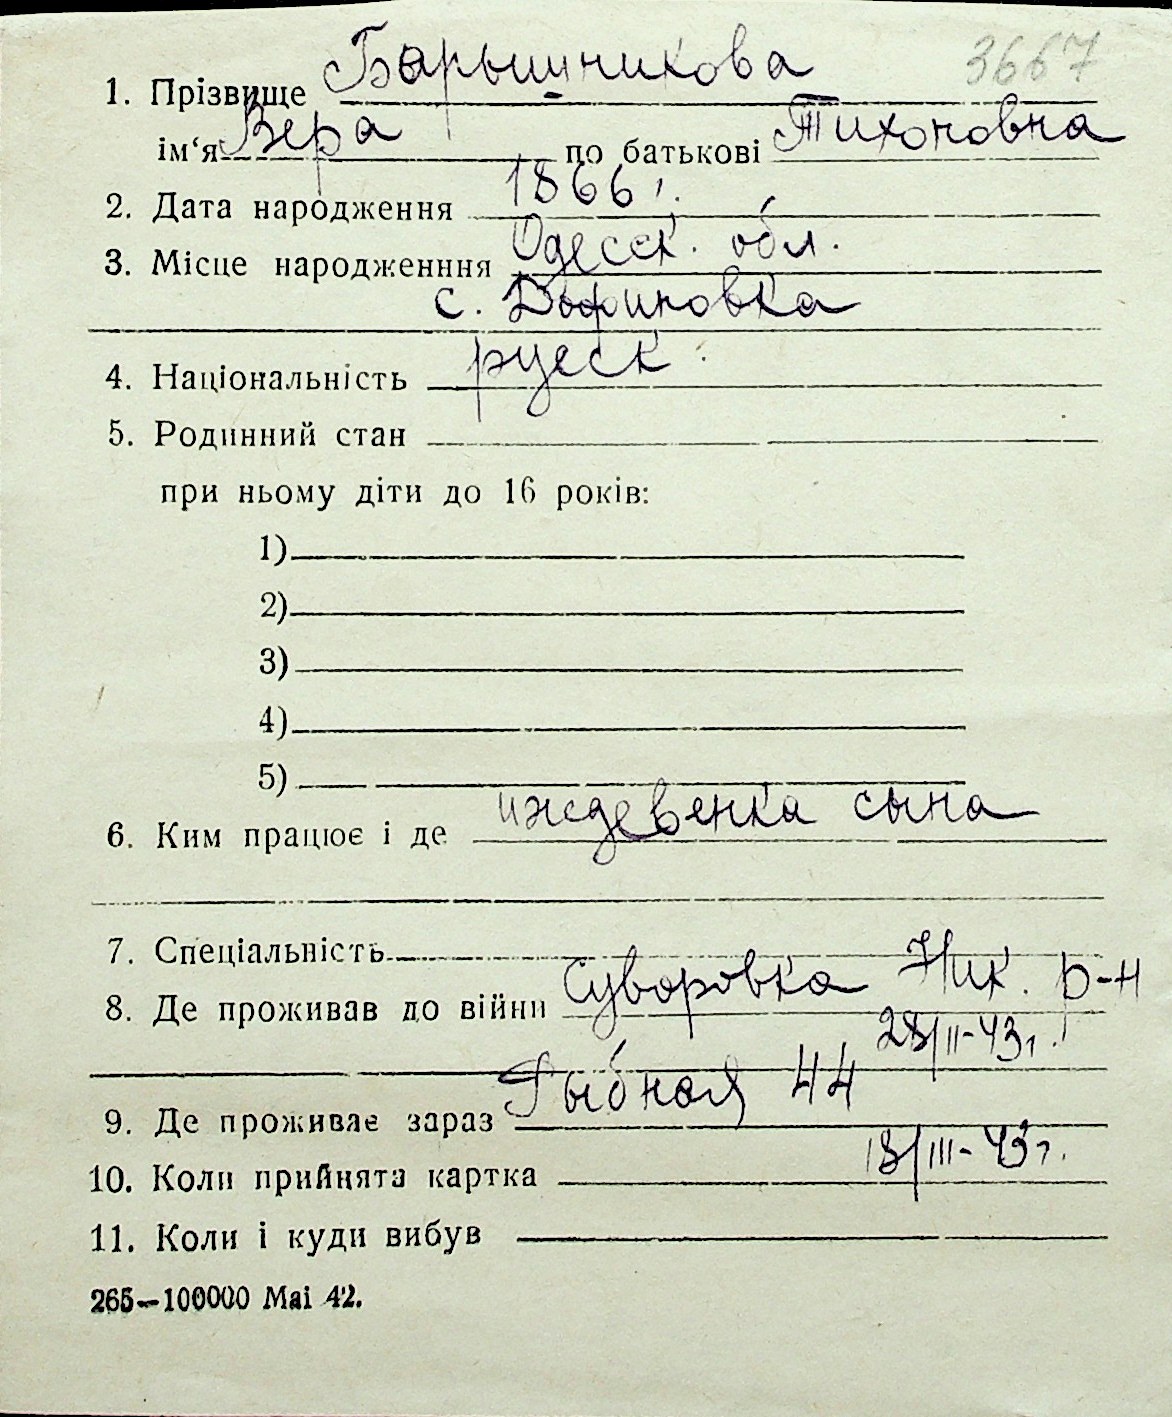 3667
1. Прізвище Барышникова
ім‘я Вера по батькові Тихоновна
2. Дата народження 1866 г.
3. Місце народженння Одесск. обл.
с. Дофиновка
4. Національність русск.
5. Родинний стан
при ньому діти до 16 років:
1)
2)
3)
4)
5)
6. Ким працює і де иждевенка сына
7. Спеціальність
8. Де проживав до війни Суворовка Ник. р-н
28/II-43 г.
9. Де проживає зараз Рыбная 44
10. Коли прийнята картка 18/III-43 г.
11. Коли і куди вибув
265—100000 Mai 42.